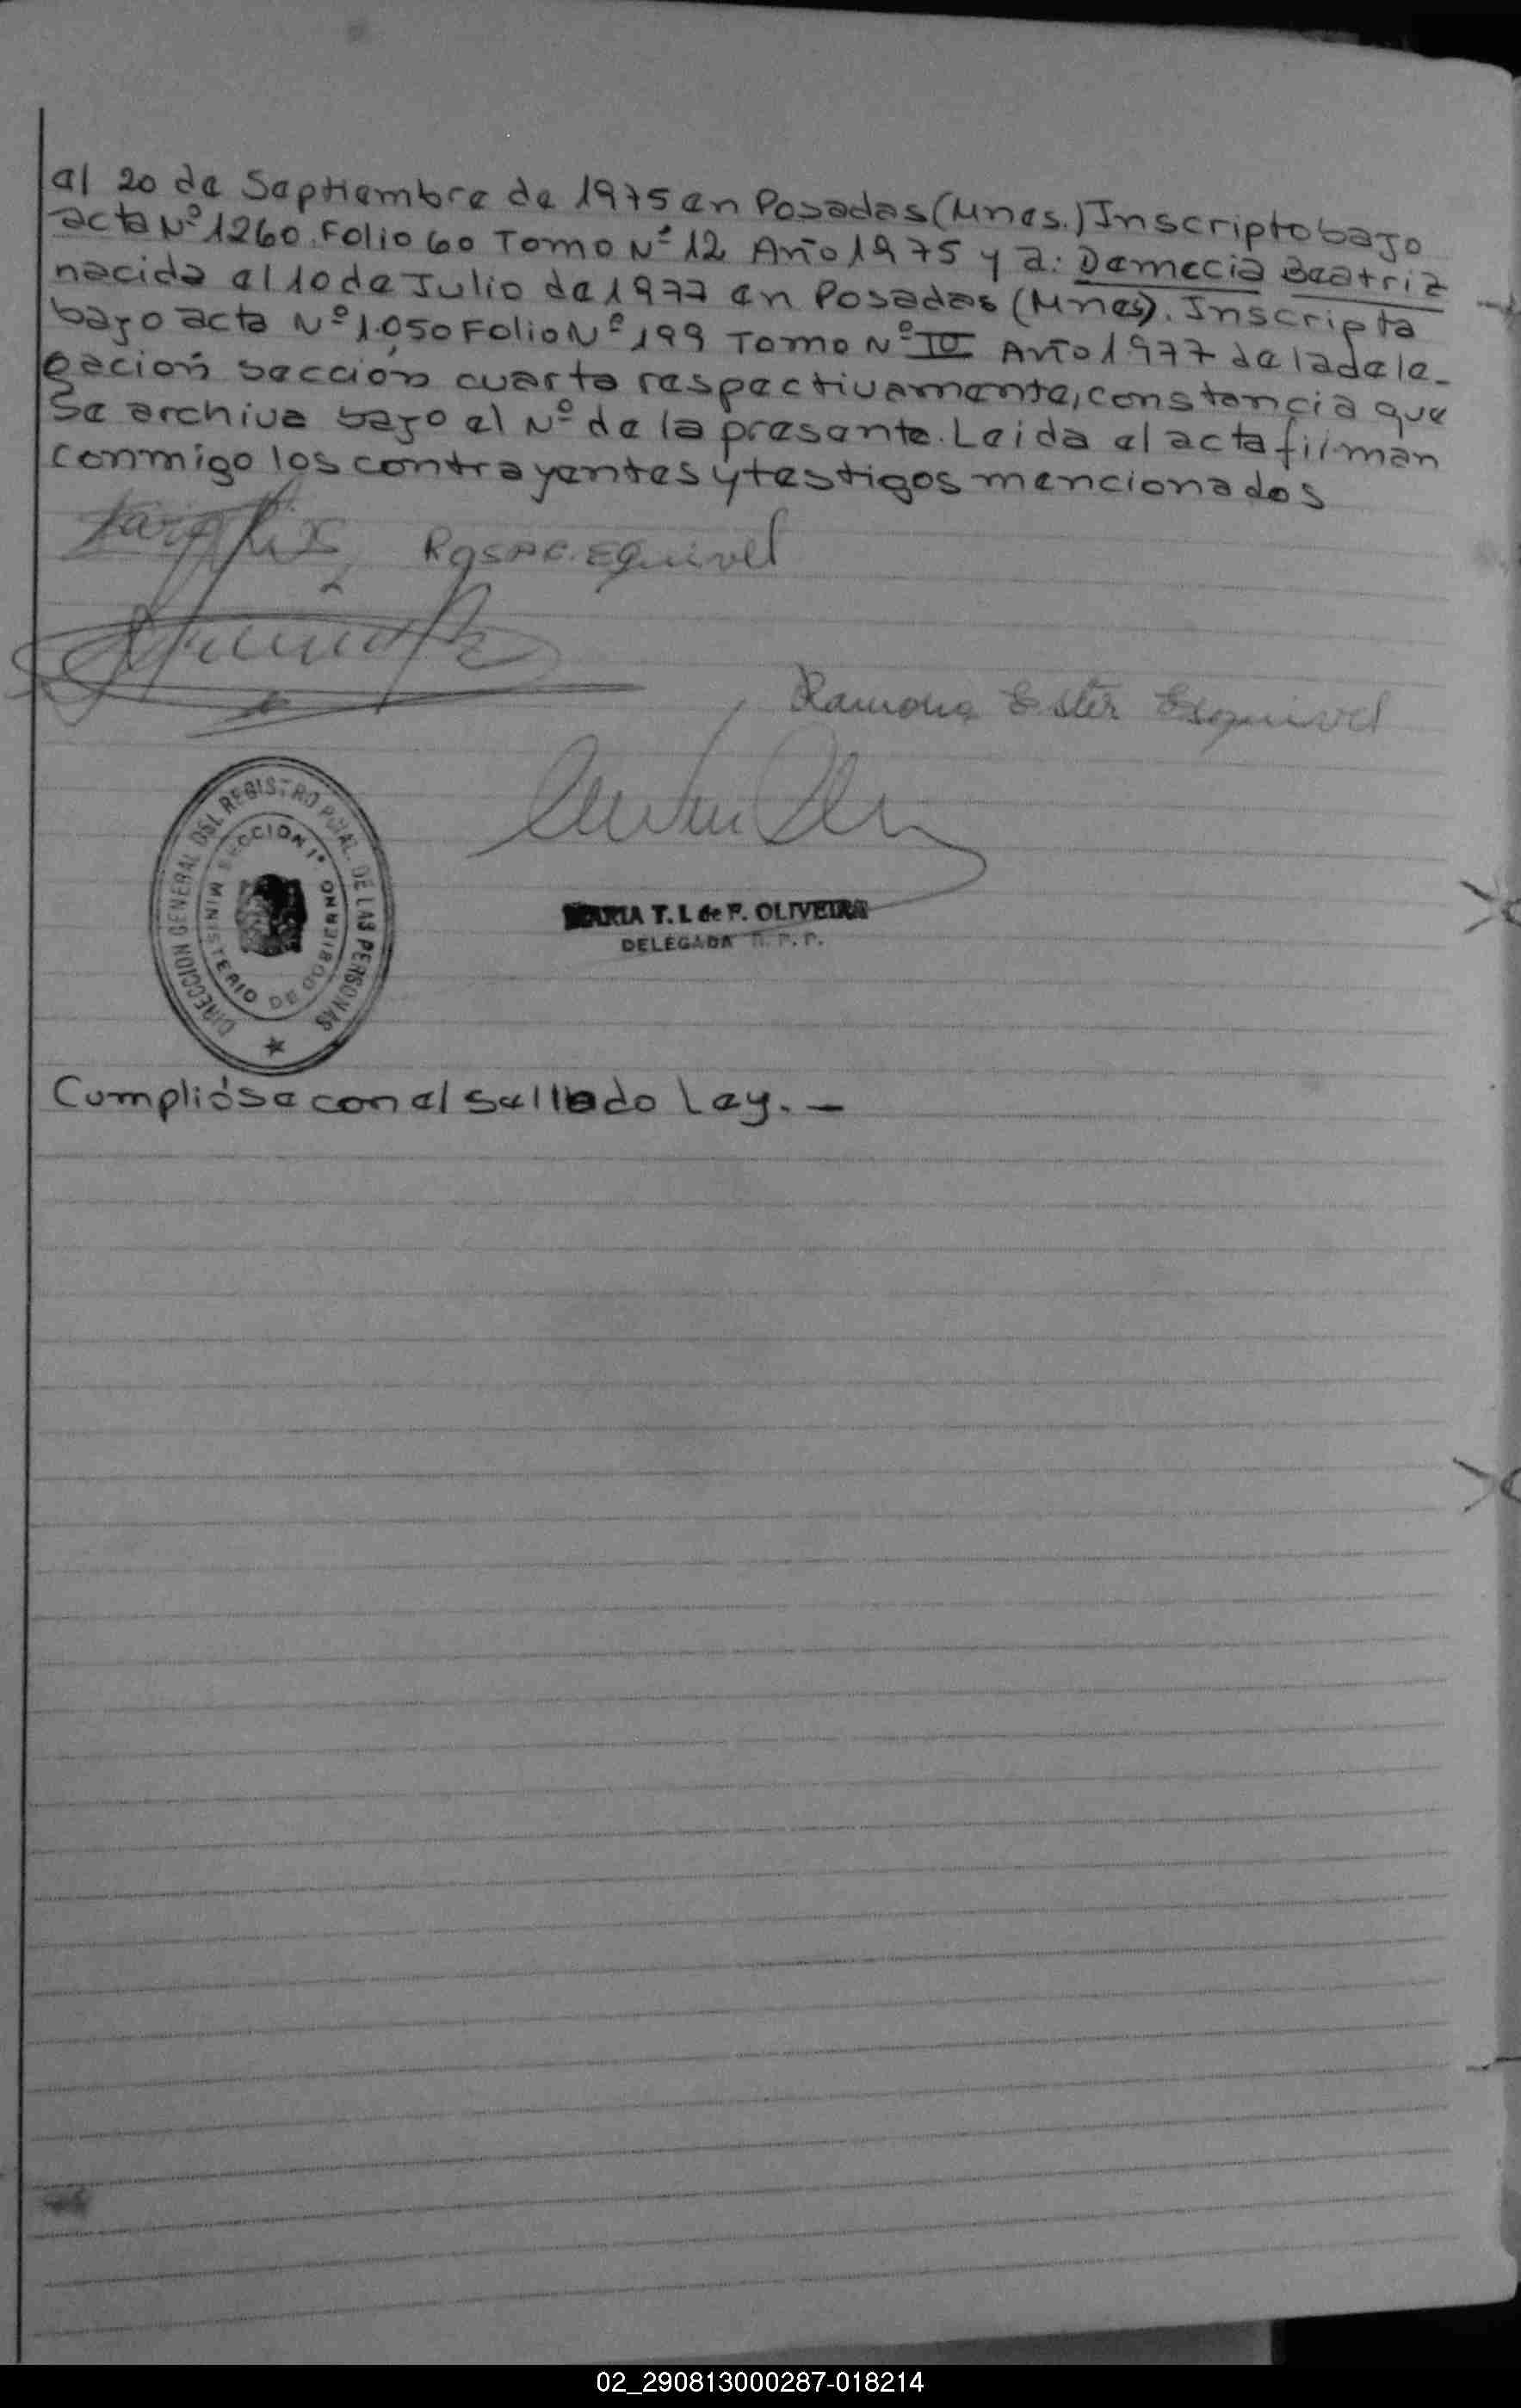 el 20 de Septiembre de 1975 en Posadas (Mnes.) Inscripto bajo
acta Nº 1260. Folio 60 Tomo Nº 12 Año 1975 y a: Demecia Beatriz
nacida el 10 de Julio de 1977 en Posadas (Mnes). Inscripta
bajo acta Nº 1.050 Folio Nº 199 Tomo Nº Año 1977 de la dele-
gación sección cuarta respectivamente, constancia que
se archiva bajo el Nº de la presente. Leida el acta firman
conmigo los contrayentes y testigos mencionados
Rosa E. Equivel
Ramona Ester Esquivel
DIRECCION GENERAL DEL REGISTRO PCIAL. DE LAS PERSONAS
SECCION 1ª
MINISTERIO DE GOBIERNO
MARIA T. L de F. OLIVEIRA
DELEGADA R. P. P.
Cumplióse con el sellado Ley. —
02_290813000287-018214